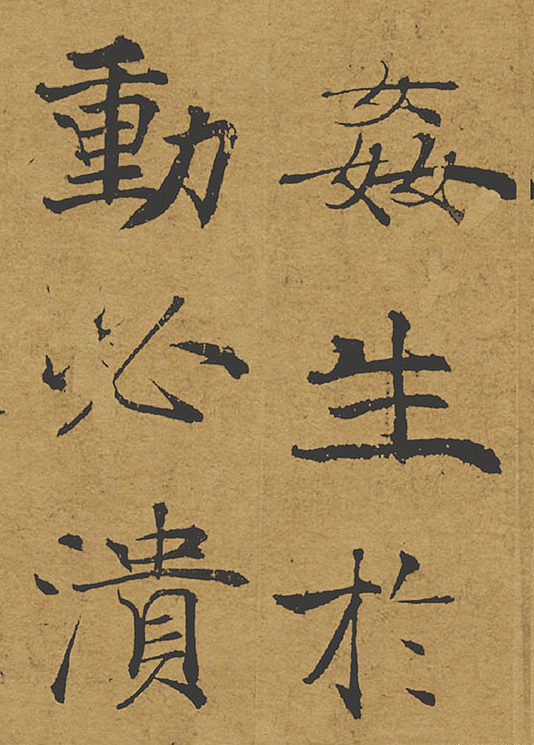 姦生於
動必潰